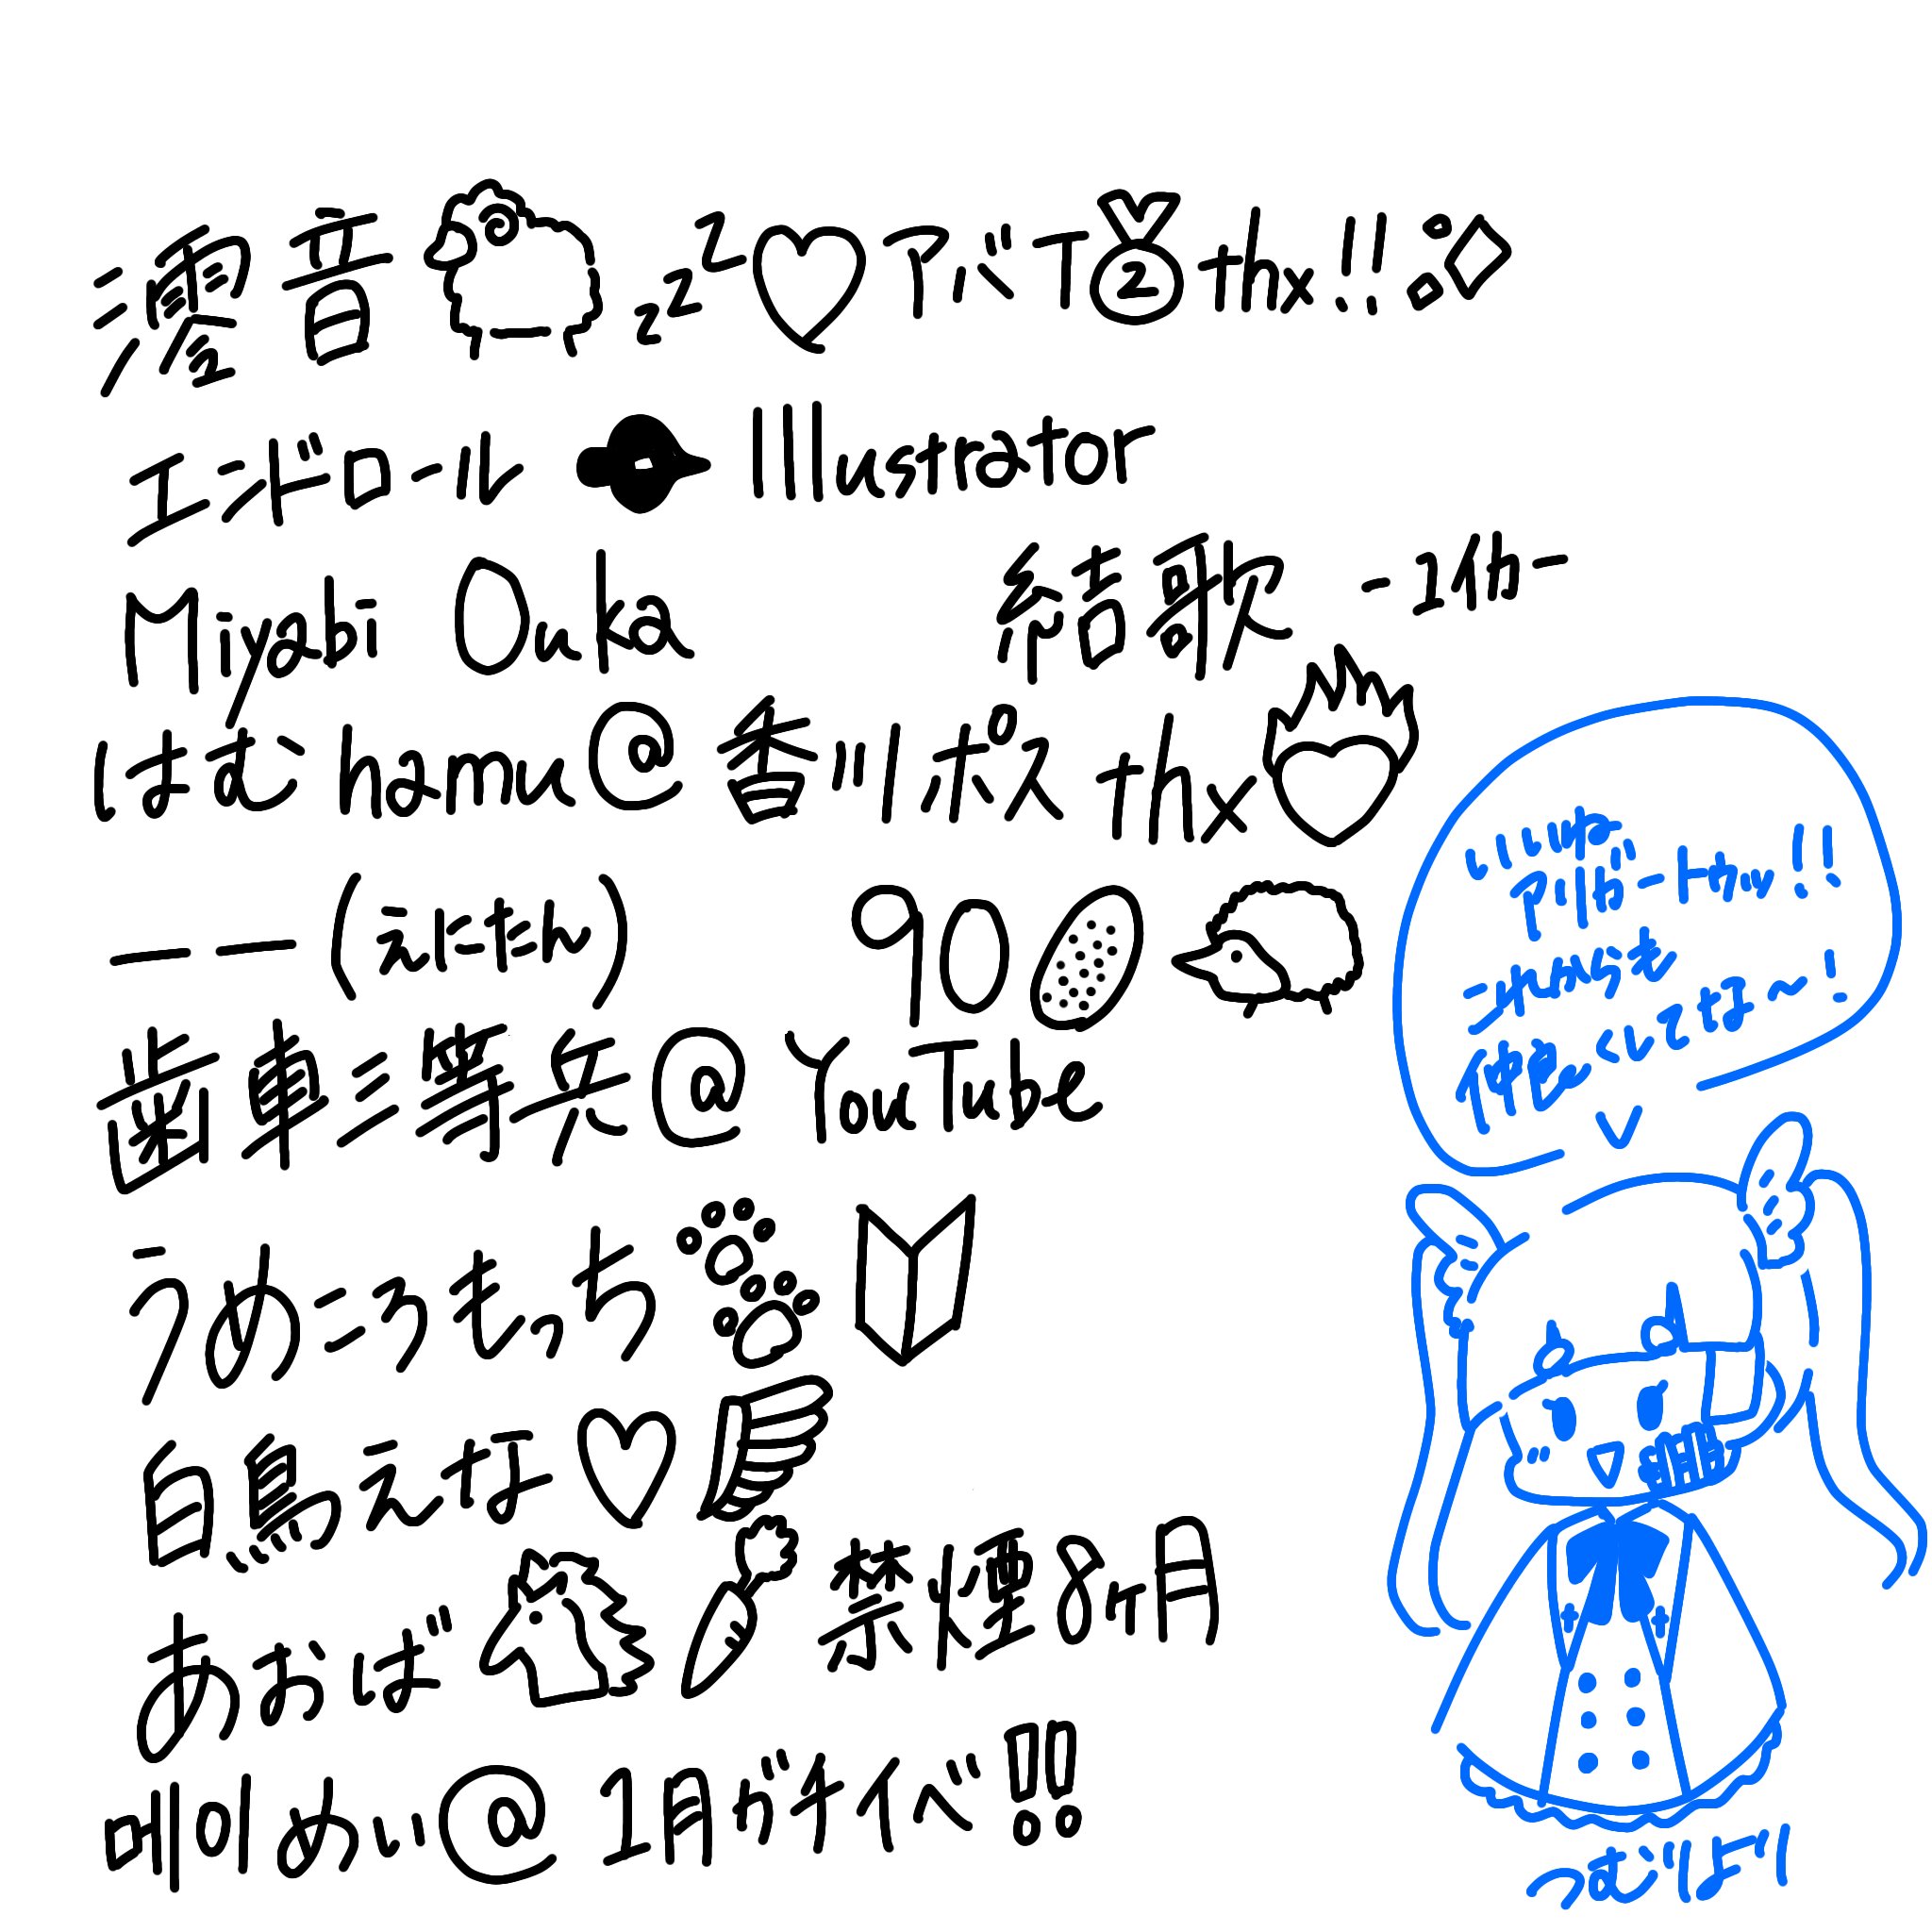 澪音 zzZ アバT②thx!!
エンドロール Illustrator
Miyabi Ouka
結歌 -1伽-
はむhamu@香川ポス thx
一 一 (えにはん)
900
歯車ミ等矢@YouTube
うめころもっち
白鳥えな
あおば 禁煙8ヶ月
매이めい@1月ガチイベ!!
いいね
リバートサん!!
これからも
仲良くしてな〜!
つむじより